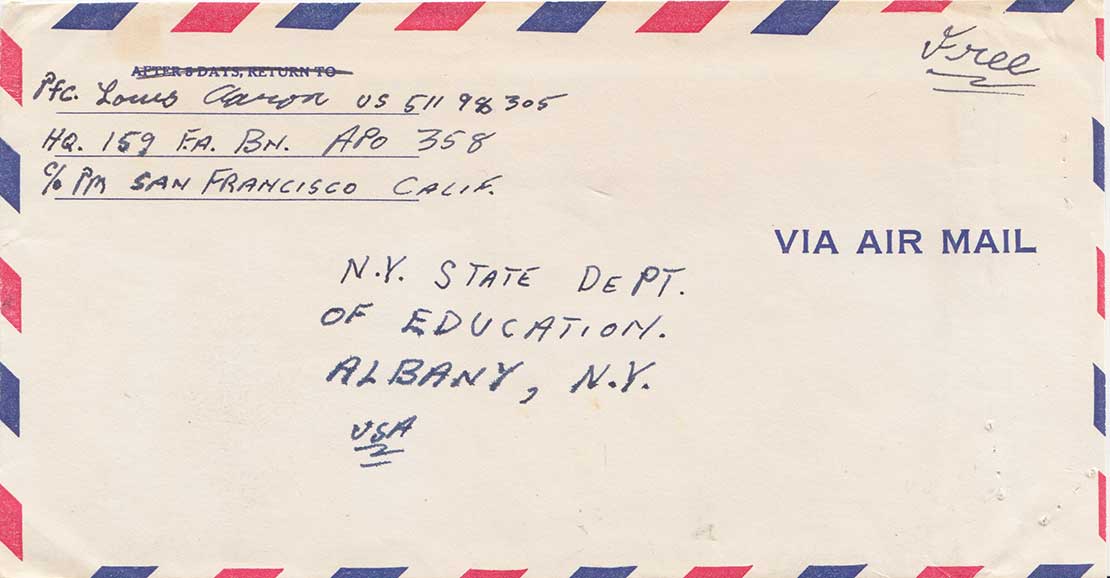 Free
AFTER 5 DAYS, RETURN TO
Pfc. Louis Aaron US 511 98 305
HQ. 159 F.A. BN. APO 358
c/o PM SAN FRANCISCO CALIF.
VIA AIR MAIL
N.Y. STATE DEPT.
OF EDUCATION.
ALBANY, N.Y.
USA